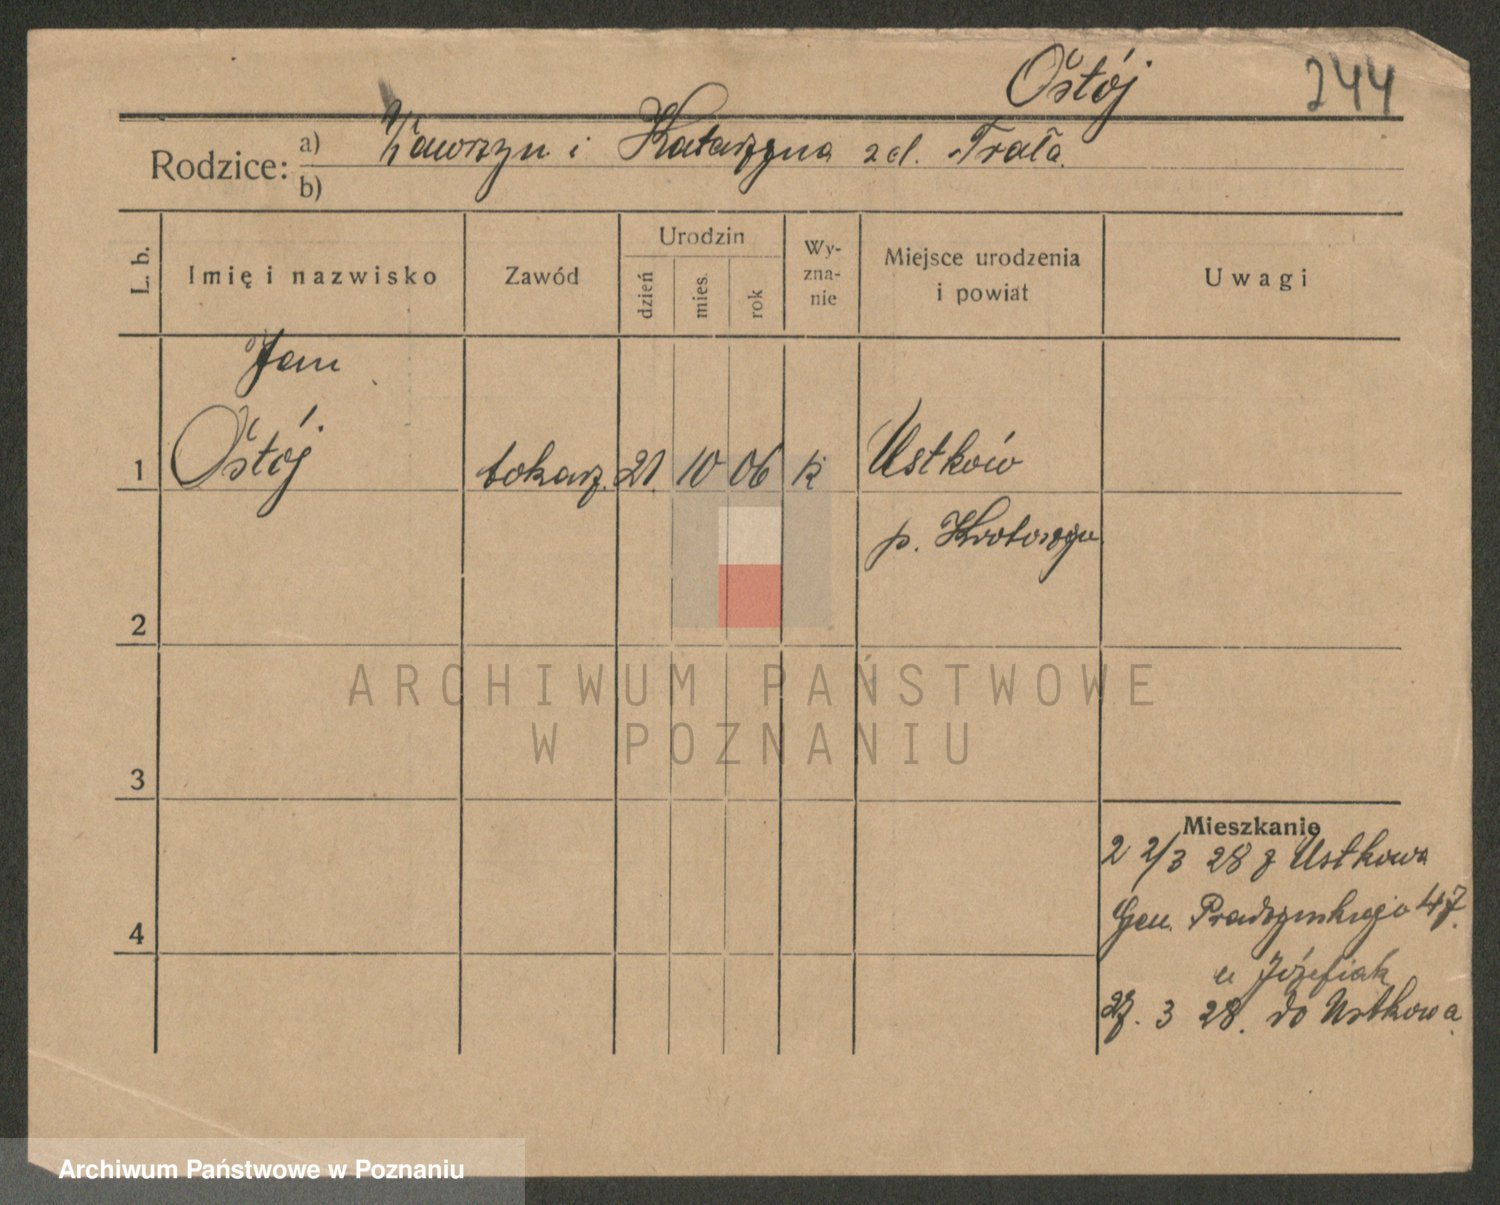 Ostój 244
Rodzice: a) Wawrzyn i Katarzyna zd. Trała
b)
L. b. Imię i nazwisko Zawód Urodzin dzień mies. rok Wy-zna-nie Miejsce urodzenia i powiat Uwagi
Jan
1 Ostój tokarz. 21. 10 06 k Ustków
p. Krotoszyn
2
3
4
Mieszkanie
2 2/3 28 z Ustkowa
Gen. Prądzyńskiego 47.
u Józefiak
27. 3 28. do Ustkowa
ARCHIWUM PAŃSTWOWE
W POZNANIU
Archiwum Państwowe w Poznaniu